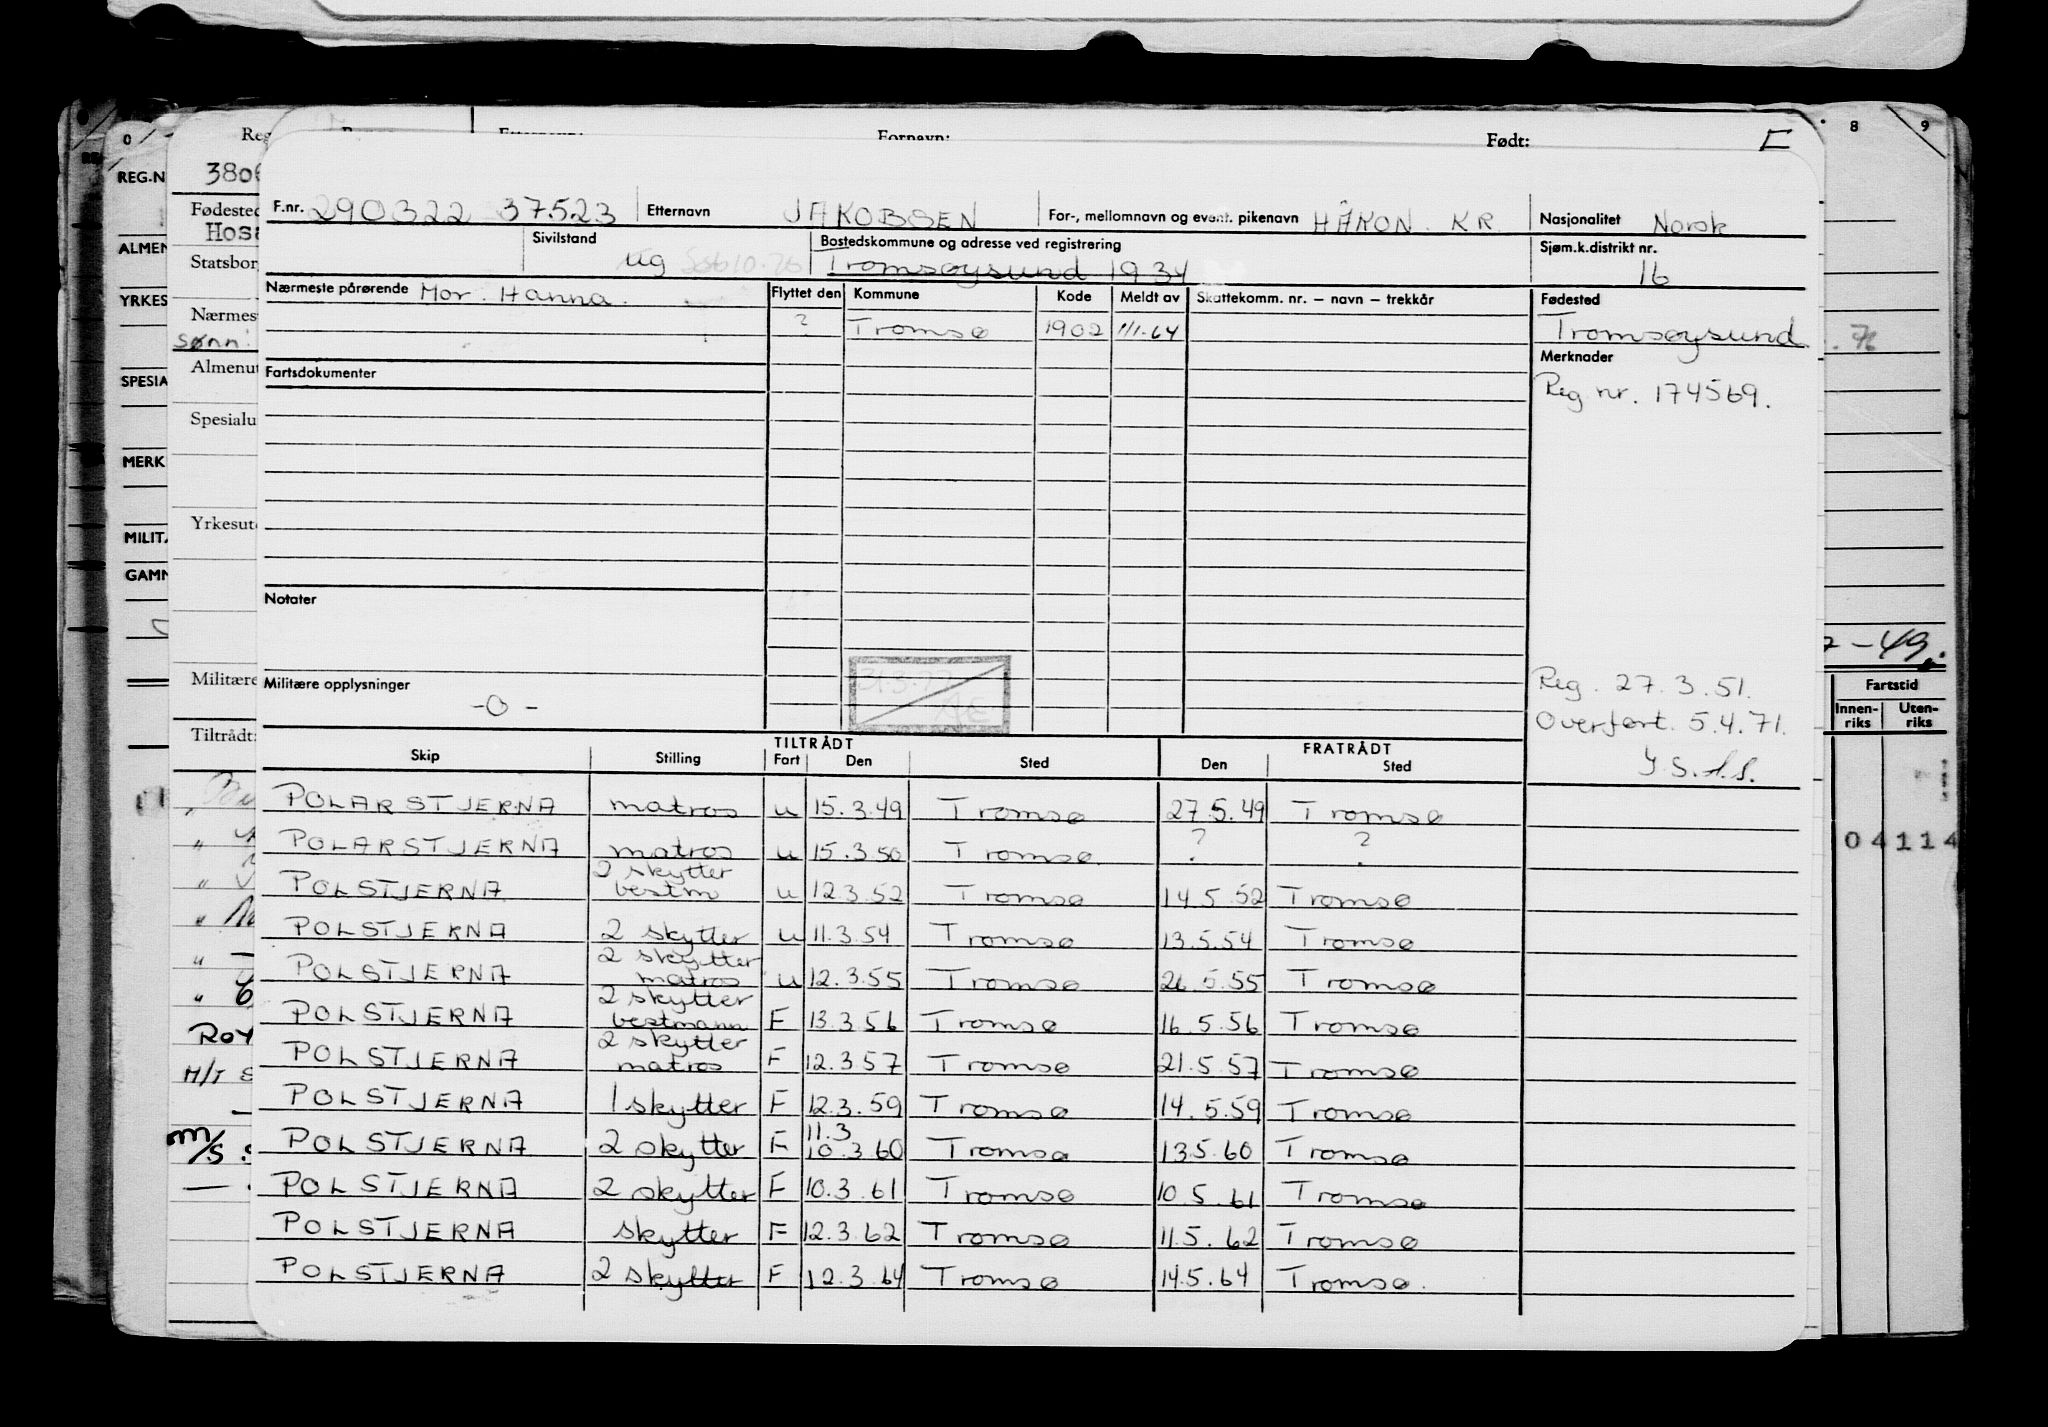 Fornavn: Født:
F.nr. 290322 37523 Etternavn JAKOBSEN For-, mellomnavn og event. pikenavn HÅKON KR Nasjonalitet Norsk
Sivilstand ug Bostedskommune og adresse ved registrering Tromsøysund 1934 Sjøm.k.distrikt nr. 16
Nærmeste pårørende Mor. Hanna. Flyttet den Kommune Kode Meldt av Skattekomm. nr. — navn — trekkår Fødested
? Tromsø 1902 1/1-64 Tromsøysund
Merknader
Fartsdokumenter
Reg nr. 174569.
Notater
Militære opplysninger
-O-
Reg. 27.3.51.
Overført. 5.4.71.
Skip Stilling TILTRÅDT Fart Den Sted FRATRÅDT Den Sted
POLARSTJERNA matros u 15.3.49 Tromsø 27.5.49 Tromsø
POLARSTJERNA matros u 15.3.50 Tromsø ? ?
POLSTJERNA 2 skytter bestm u 12.3.52 Tromsø 14.5.52 Tromsø
POLSTJERNA 2 skytter u 11.3.54 Tromsø 13.5.54 Tromsø
POLSTJERNA 2 skytter matros u 12.3.55 Tromsø 26.5.55 Tromsø
POLSTJERNA 2 skytter bestmann F 13.3.56 Tromsø 16.5.56 Tromsø
POLSTJERNA 2 skytter matros F 12.3.57 Tromsø 21.5.57 Tromsø
POLSTJERNA 1 skytter F 12.3.59 Tromsø 14.5.59 Tromsø
POLSTJERNA 2 skytter F 11.3 10.3.60 Tromsø 13.5.60 Tromsø
POLSTJERNA 2 skytter F 10.3.61 Tromsø 10.5.61 Tromsø
POLSTJERNA skytter F 12.3.62 Tromsø 11.5.62 Tromsø
POLSTJERNA 2 skytter F 12.3.64 Tromsø 14.5.64 Tromsø.
0
REG.N
ALMEN
YRKES
SPESIA
MERK
MILITÆ
GAMM
Reg
380
Fødested
Hosa
Statsbor
Nærmes
sønn:
Almenut
Spesialu
Yrkesut
Militære
Tiltrådt:
M/S
8 9
-49.
Fartstid
Innen-riks Uten-riks
04114